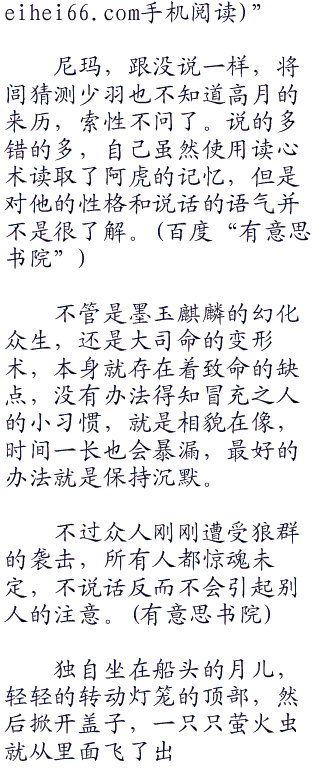 eihei66.com手机阅读)”
尼玛，跟没说一样，将
闾猜测少羽也不知道高月的
来历，索性不问了。说的多
错的多，自己虽然使用读心
术读取了阿虎的记忆，但是
对他的性格和说话的语气并
不是很了解。(百度“有意思
书院”)
不管是墨玉麒麟的幻化
众生，还是大司命的变形
术，本身就存在着致命的缺
点，没有办法得知冒充之人
的小习惯，就是相貌在像，
时间一长也会暴漏，最好的
办法就是保持沉默。
不过众人刚刚遭受狼群
的袭击，所有人都惊魂未
定，不说话反而不会引起别
人的注意。(有意思书院)
独自坐在船头的月儿，
轻轻的转动灯笼的顶部，然
后掀开盖子，一只只萤火虫
就从里面飞了出